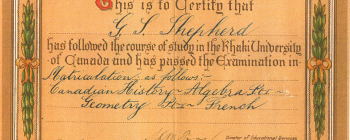 This is to Certify that
G. S. Shepherd
has followed the course of study in the Khaki University
of Canada and has passed the Examination in
Matriculation, as follows:-
Canadian History - Algebra Pt I -
Geometry Pt I - French
Director of Educational Services